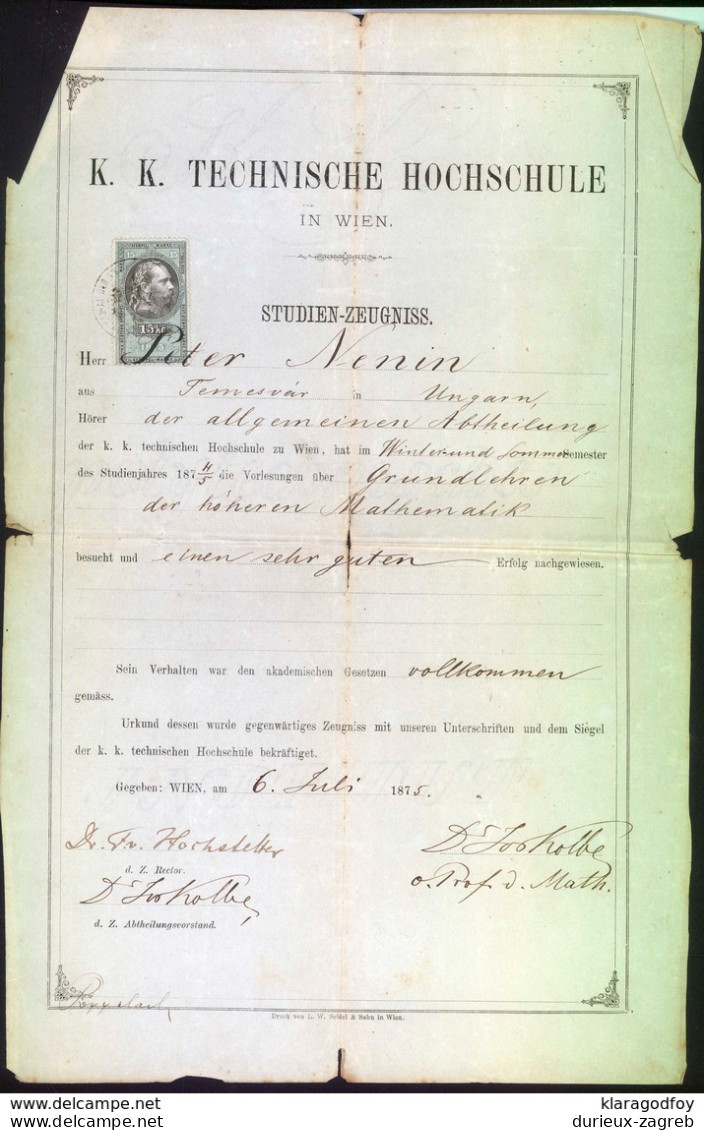 K. K. TECHNISCHE HOCHSCHULE
IN WIEN.
15 15
15 KR
STUDIEN-ZEUGNISS.
Herr Peter Nenin
aus Temesvár in Ungarn,
Hörer der allgemeinen Abtheilung
der k. k. technischen Hochschule zu Wien, hat im Winter-und Sommersemester
des Studienjahres 187 4/5 die Vorlesungen über Grundlehren
der höheren Mathematik
besucht und einen sehr guten Erfolg nachgewiesen.
Sein Verhalten war den akademischen Gesetzen vollkommen
gemäss.
Urkund dessen wurde gegenwärtiges Zeugniss mit unseren Unterschriften und dem Siegel
der k. k. technischen Hochschule bekräftiget.
Gegeben: WIEN, am 6. Juli 1875.
Dr. Fv. Hochstetter
d. Z. Rector.
Dr Jos Kolbe
o. Prof. d. Math.
Dr Jos Kolbe,
d. Z. Abtheilungsvorstand.
Druck von L. W. Seidel & Sohn in Wien.
klaragodfoy
durieux-zagreb